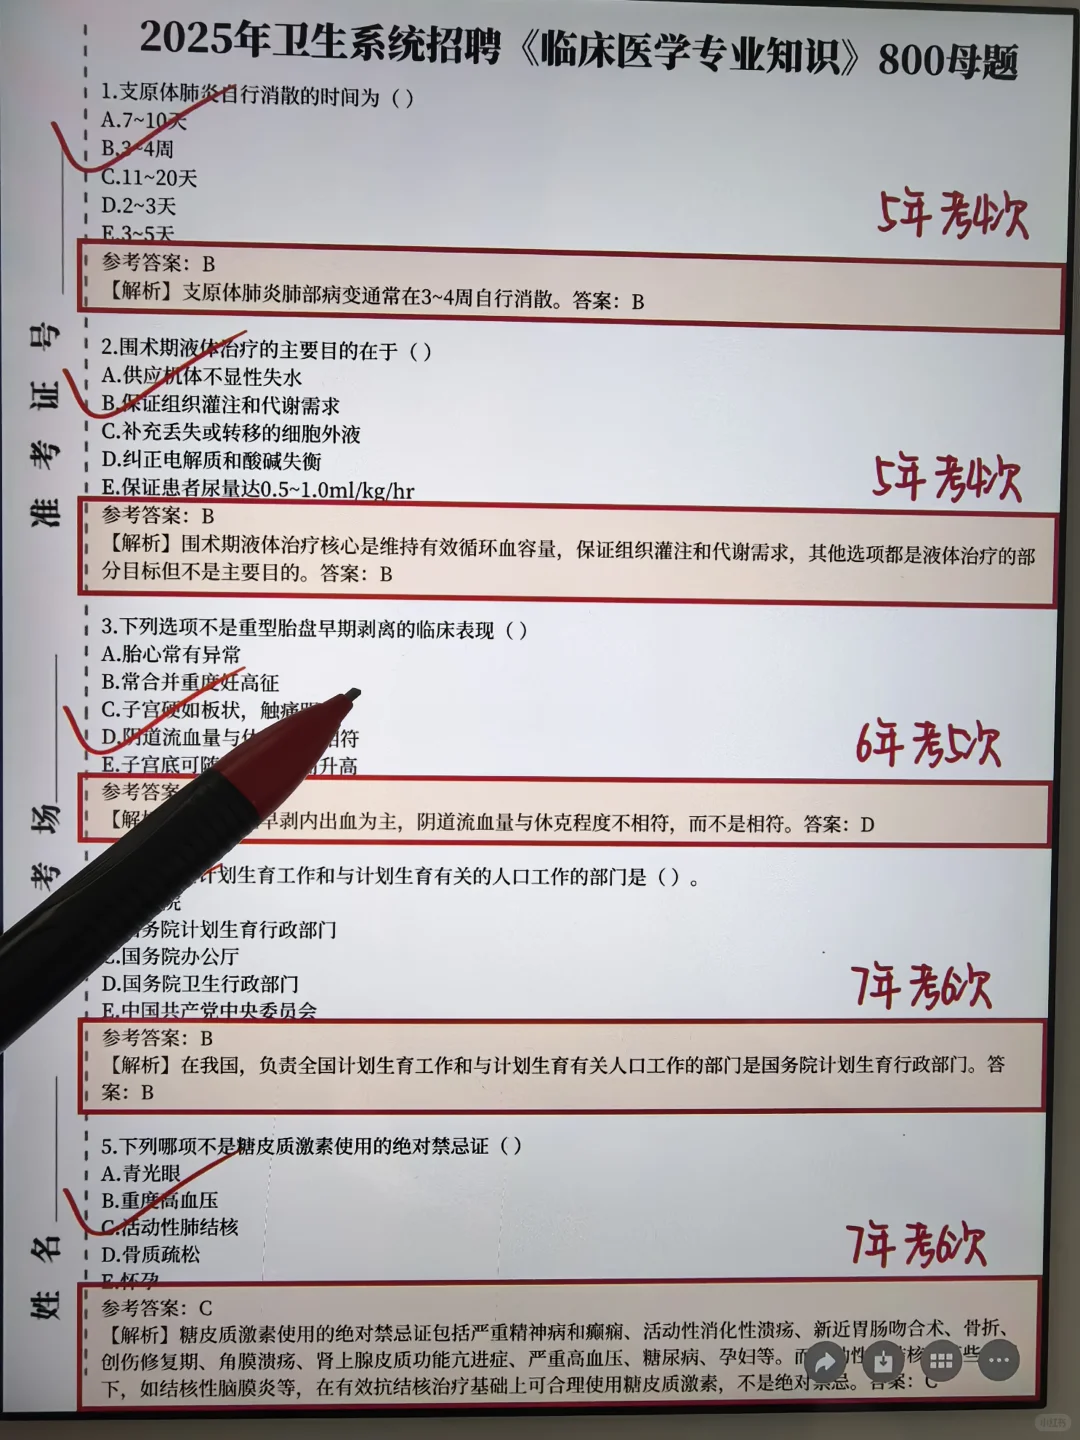 2025年卫生系统招聘《临床医学专业知识》800母题
1.支原体肺炎自行消散的时间为（ ）
A.7~10天
B.3~4周
C.11~20天
D.2~3天
E.3~5天
5年考4次
参考答案：B
【解析】支原体肺炎肺部病变通常在3~4周自行消散。答案：B
2.围术期液体治疗的主要目的在于（ ）
A.供应机体不显性失水
B.保证组织灌注和代谢需求
C.补充丢失或转移的细胞外液
D.纠正电解质和酸碱失衡
E.保证患者尿量达0.5~1.0ml/kg/hr
5年考4次
参考答案：B
【解析】围术期液体治疗核心是维持有效循环血容量，保证组织灌注和代谢需求，其他选项都是液体治疗的部
分目标但不是主要目的。答案：B
3.下列选项不是重型胎盘早期剥离的临床表现（ ）
A.胎心常有异常
B.常合并重度妊高征
C.子宫硬如板状，触痛
D.阴道流血量与 相符
E.子宫底可随 升高
6年考5次
参考答案
【解 早剥内出血为主，阴道流血量与休克程度不相符，而不是相符。答案：D
计划生育工作和与计划生育有关的人口工作的部门是（ ）。
院
国务院计划生育行政部门
C.国务院办公厅
D.国务院卫生行政部门
E.中国共产党中央委员会
7年考6次
参考答案：B
【解析】在我国，负责全国计划生育工作和与计划生育有关人口工作的部门是国务院计划生育行政部门。答
案：B
5.下列哪项不是糖皮质激素使用的绝对禁忌证（ ）
A.青光眼
B.重度高血压
C.活动性肺结核
D.骨质疏松
E.怀孕
7年考6次
参考答案：C
【解析】糖皮质激素使用的绝对禁忌证包括严重精神病和癫痫、活动性消化性溃疡、新近胃肠吻合术、骨折、
创伤修复期、角膜溃疡、肾上腺皮质功能亢进症、严重高血压、糖尿病、孕妇等。而 动性 结核 些
下，如结核性脑膜炎等，在有效抗结核治疗基础上可合理使用糖皮质激素，不是绝对禁忌。答案：C
准考证号
考场
姓名
小红书